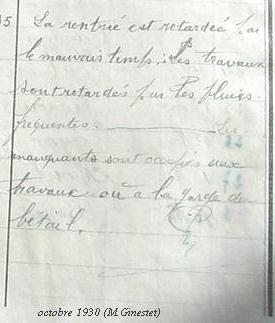 35 La rentrée est retardée par
le mauvais temps ; Les travaux
sont retardés par les pluies
fréquentes. Les
manquants sont occupés aux
travaux ou à la garde du
bétail.
octobre 1930 (M Ginestet)